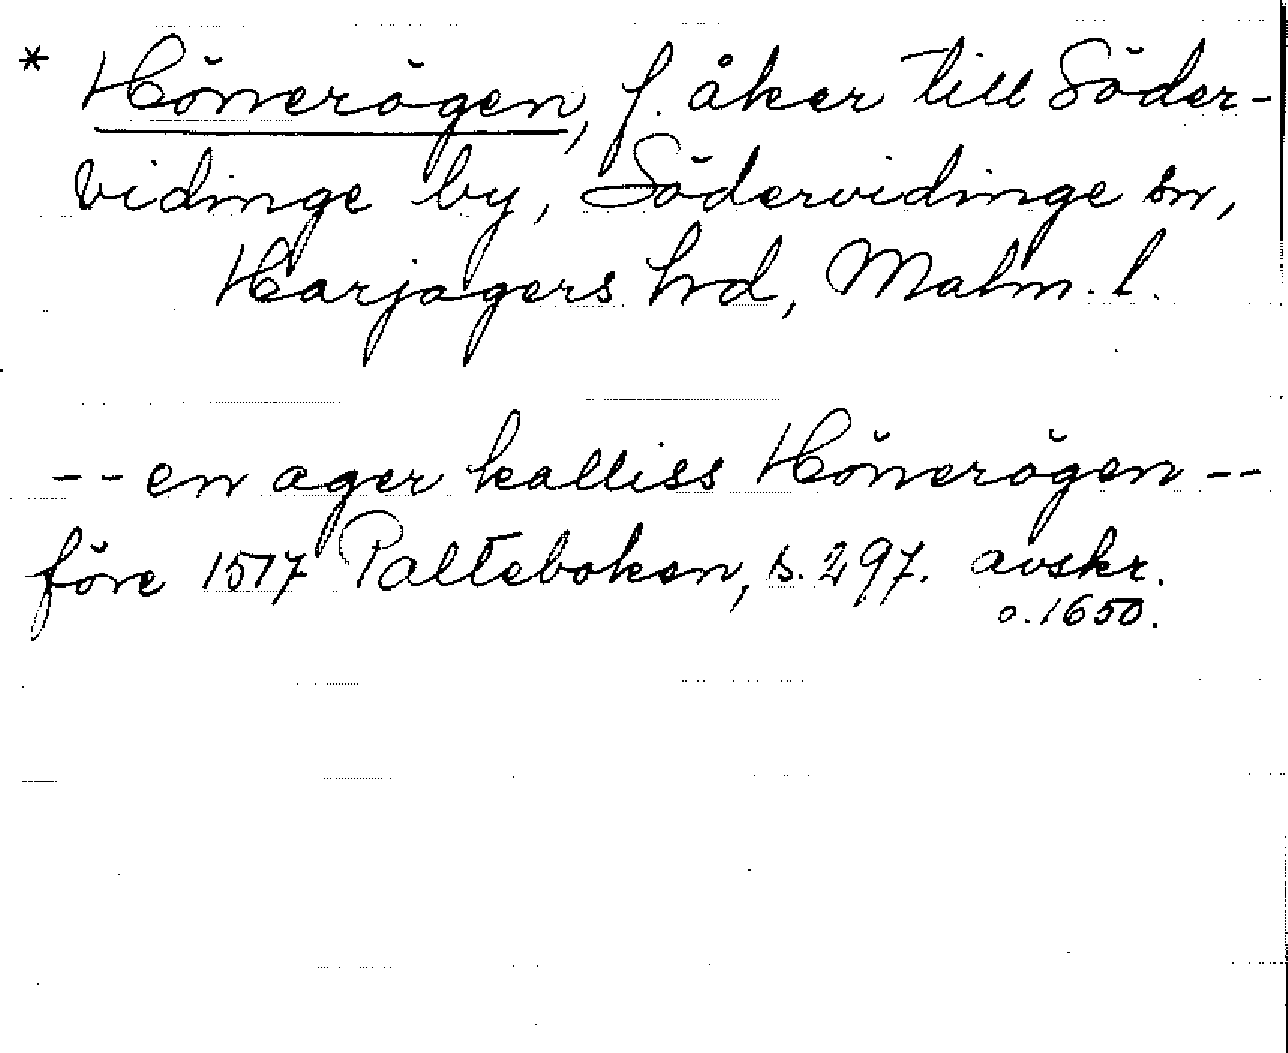 * Hönerögen, f. åker till Söder-
vidinge by, Södervidinge sn,
Harjagers hd, Malm. l.
-- en ager kalliss Hönerögen --
före 1517 Palteboken, s. 297. avskr.
o. 1650.